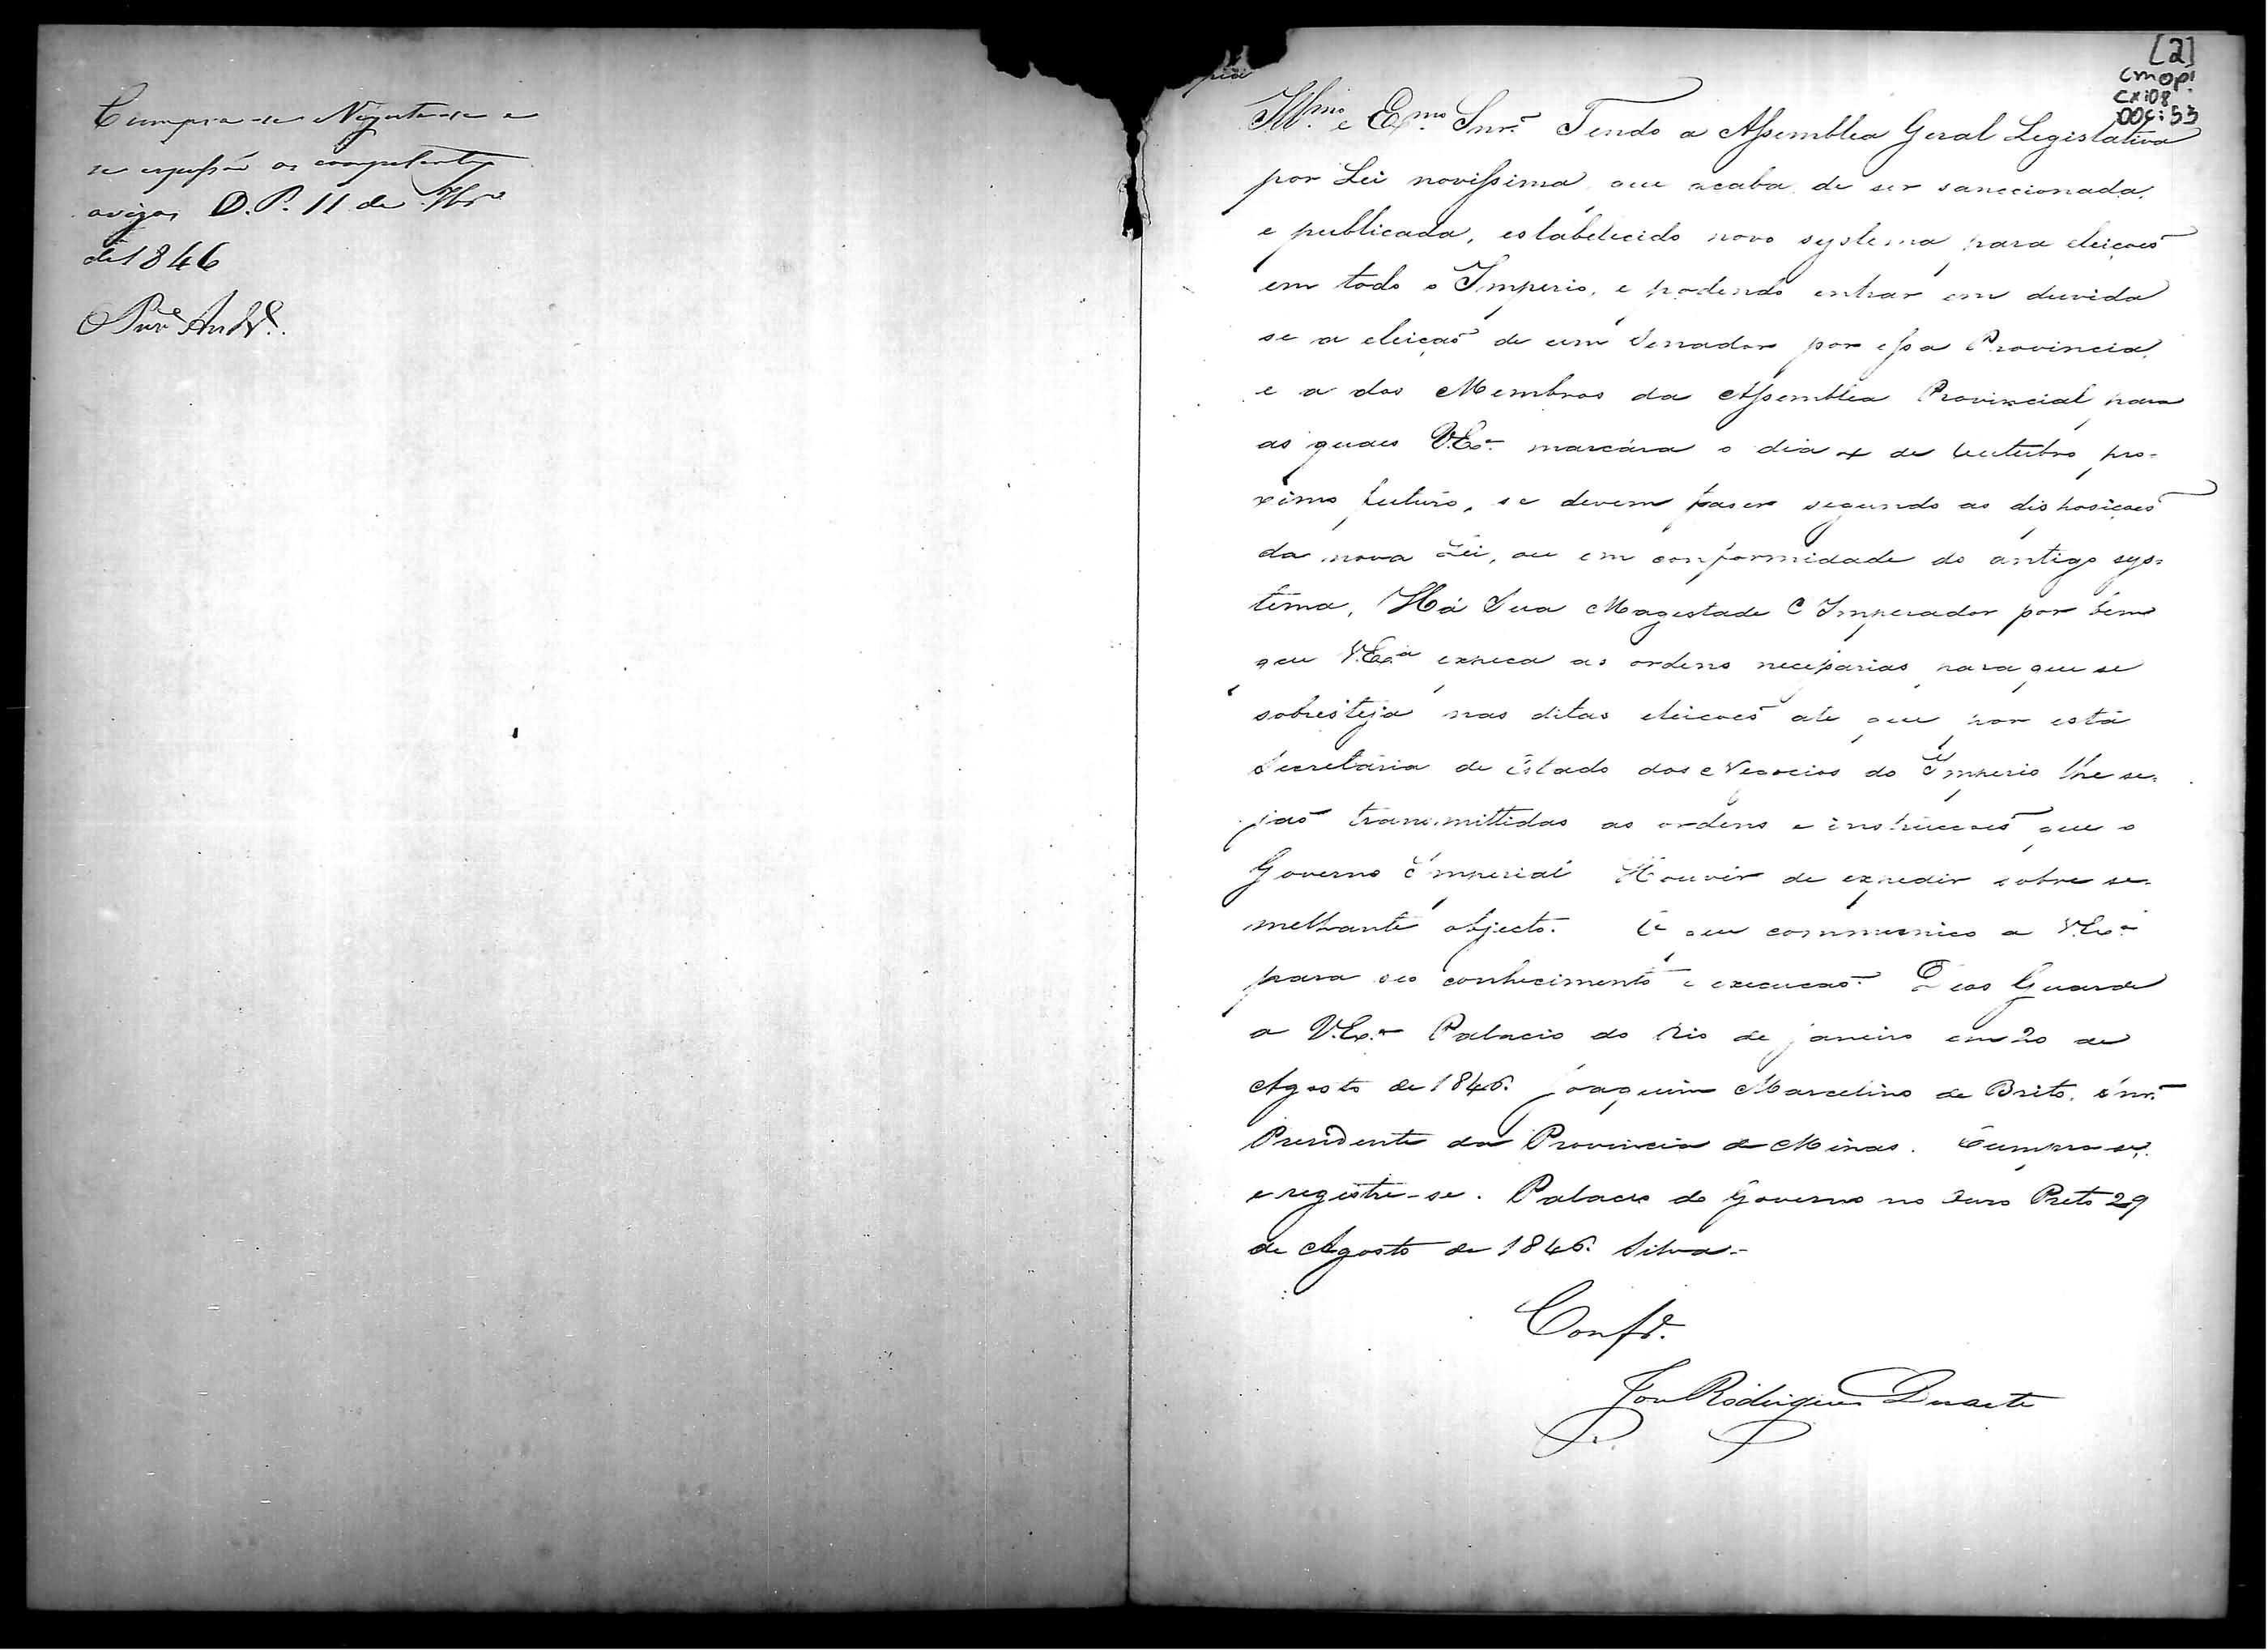 Cumpra-se Registe-se e
se expessão os competentes
avizos D. P. 11 de 7br.º
de 1846
[2]
CMOP
CX:08
DOC:53
Ill.mo e Ex.mo Snr. Tendo a Assemblea Geral Legislativa
por Lei novissima, que acaba de ser sanccionada,
e publicada, estabelecido novo systema para eleiçoẽs
em todo o Imperio, e podendo entrar em duvida
se a eleiçaõ de um Senador por essa Provincia,
e a dos Membros da Assemblea Provincial para
as quaes V.Ex.ª marcára o dia 4 de Outubro pro-
ximo futuro, se devem fazer segundo as disposiçoẽs
da nova Lei, ou em conformidade do antigo sys-
tema, Há Sua Magestade O Imperador por bem
que V.Ex.ª expeça as ordens necessarias para que se
sobresteja nas ditas eleiçoẽs até que por esta
Secretaria de Estado dos Negocios do Imperio lhe se-
jaõ transmittidas as ordens e instrucçoẽs que o
Governo Imperial Houver de expedir sobre se-
melhante objecto. O que communico a V.Ex.ª
para seo conhecimento e execuçaõ. Deos Guarde
a V.Ex.ª Palacio do Rio de Janeiro em 20 de
Agosto de 1846. Joaquim Marcelino de Brito. Snr.
Presidente da Provincia de Minas. Cumpra-se,
e registe-se. Palacio do Governo no Ouro Preto 29
de Agosto de 1846. Silva.-
Conf.e
Rodrigues Duarte